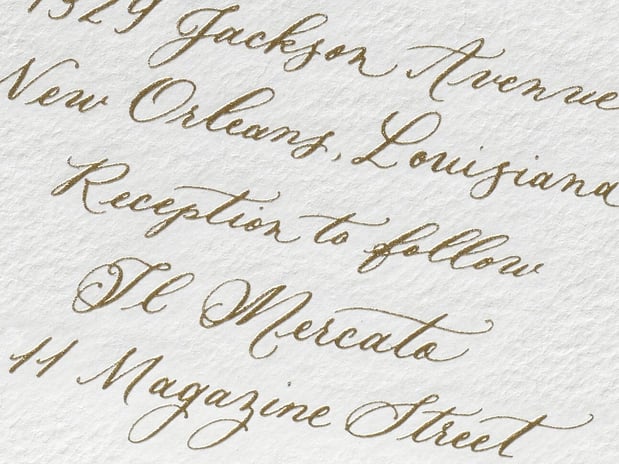 1329 Jackson Avenue
New Orleans, Louisiana
Reception to follow
Il Mercato
11 Magazine Street